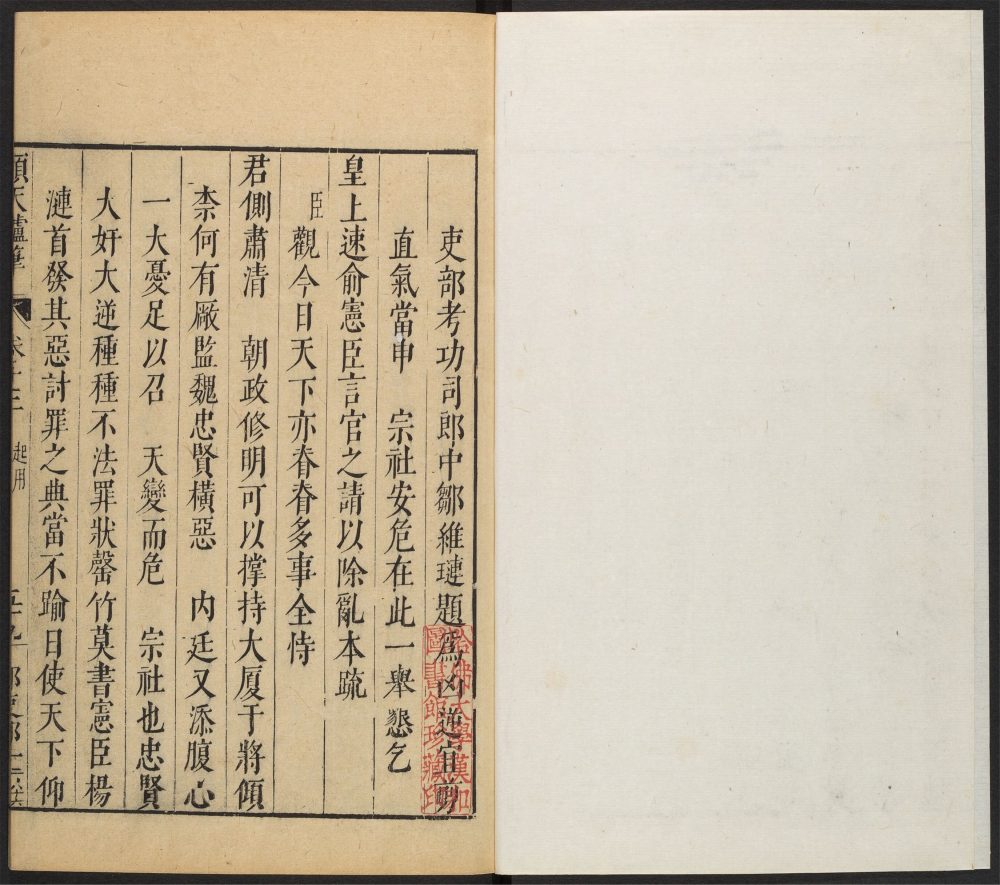 吏部考功司郎中鄒維璉題爲凶逆宜剪
直氣當申　宗社安危在此一舉懇乞
皇上速俞憲臣言官之請以除亂本疏
臣觀今日天下亦眷眷多事全恃
君側肅清　朝政修明可以撑持大厦于將傾
柰何有厰監魏忠賢橫惡　内廷又添腹心
一大憂足以召　天變而危　宗社也忠賢
大奸大逆種種不法罪狀罄竹莫書憲臣楊
漣首發其惡討罪之典當不踰日使天下仰
頌天臚筆 卷十三 起用
哈佛大學漢和
圖書館珍藏印